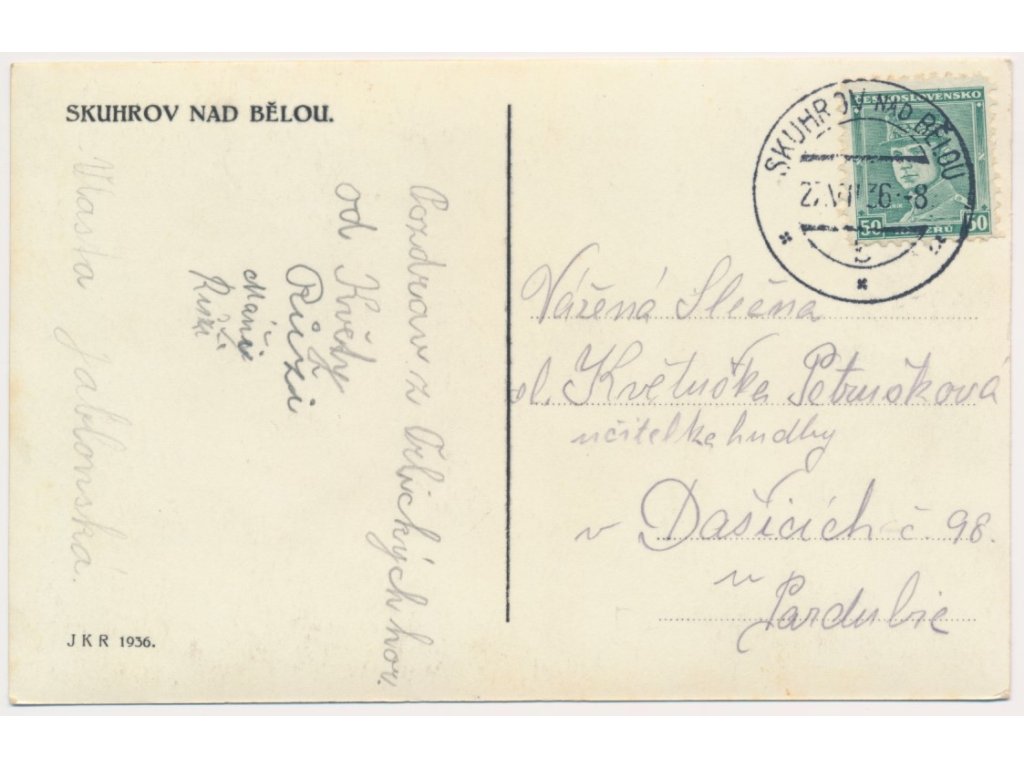 SKUHROV NAD BĚLOU.
Pozdrav z Orlických hor.
od Květy
Růzi
Vlasta Jablonská.
JKR 1936.
SKUHROV NAD BĚLOU
36-8
ČESKOSLOVENSKO
50 50
Vážená Slečna
sl. Květuška Petrušková
učitelka hudby
v Dašicích č. 98.
u
Pardubic